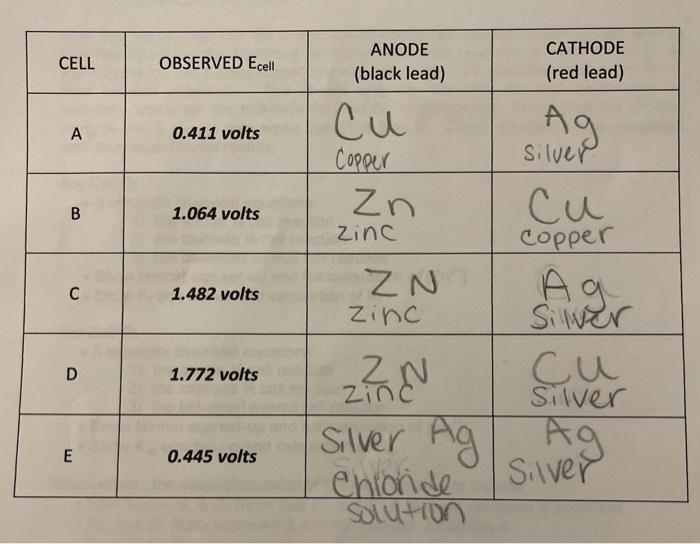 CELL
OBSERVED Ecell
ANODE
(black lead)
CATHODE
(red lead)
A
0.411 volts
Cu
Copper
Ag
Silver
B
1.064 volts
Zn
zinc
Cu
copper
C
1.482 volts
ZN
zinc
Ag
Silver
D
1.772 volts
ZN
zinc
Cu
Silver
E
0.445 volts
Silver Ag
Chloride
Solution
Ag
Silver